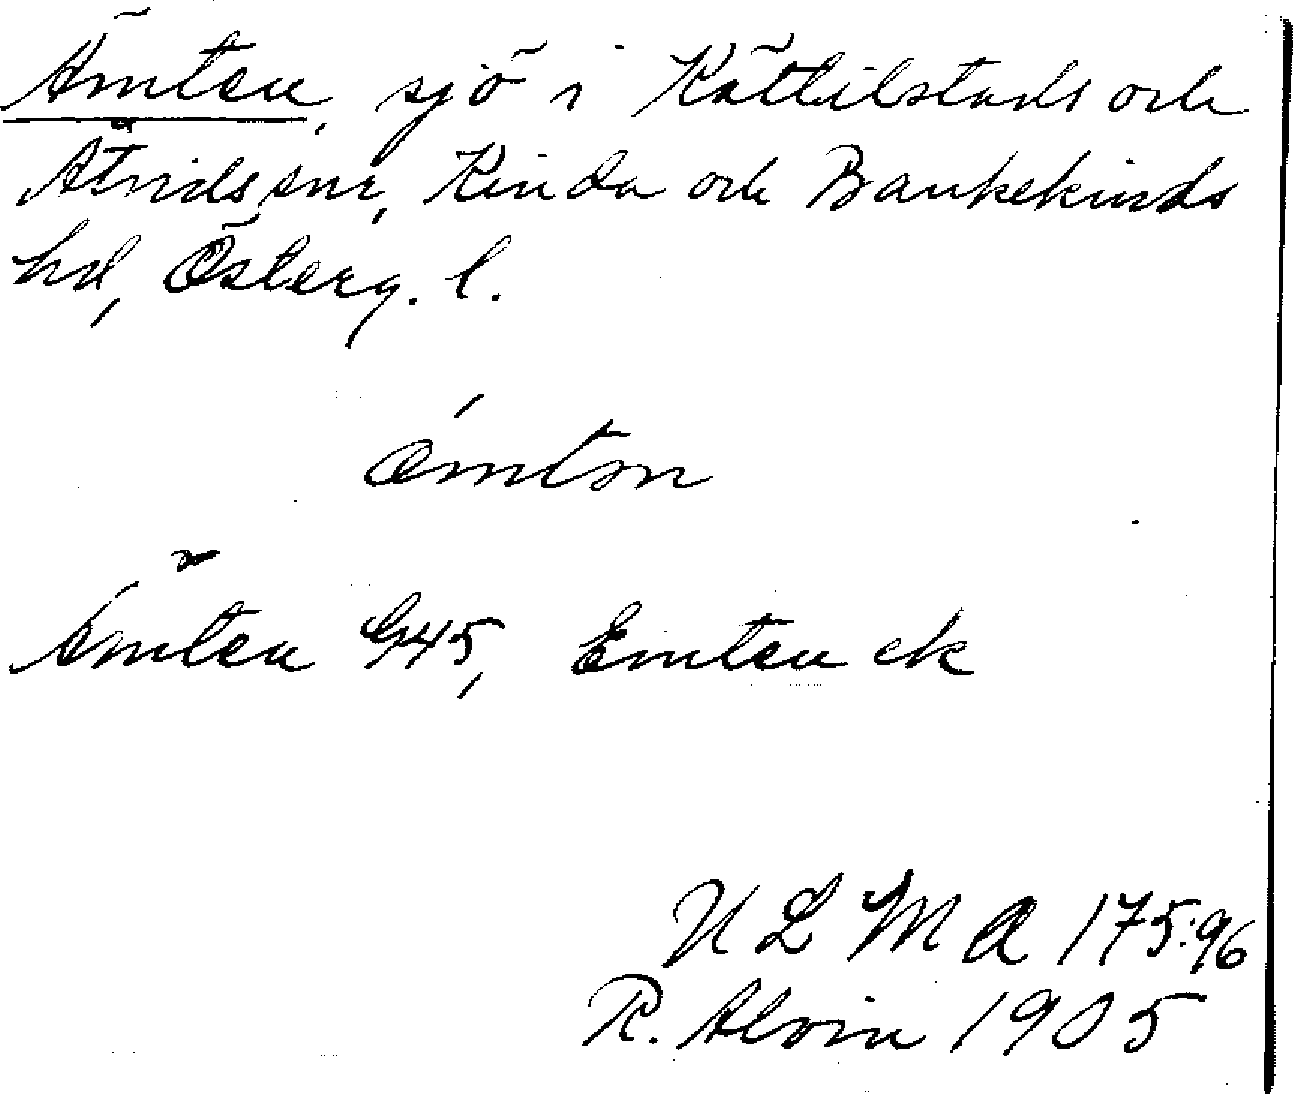 Ämten, sjö i Kättilstads och
Åtvids snr, Kinda och Bankekinds
hd, Österg. l.
ǿmtɘn
Ämten G45, Emten ek
ULMA 175:96
R. Alvin 1905